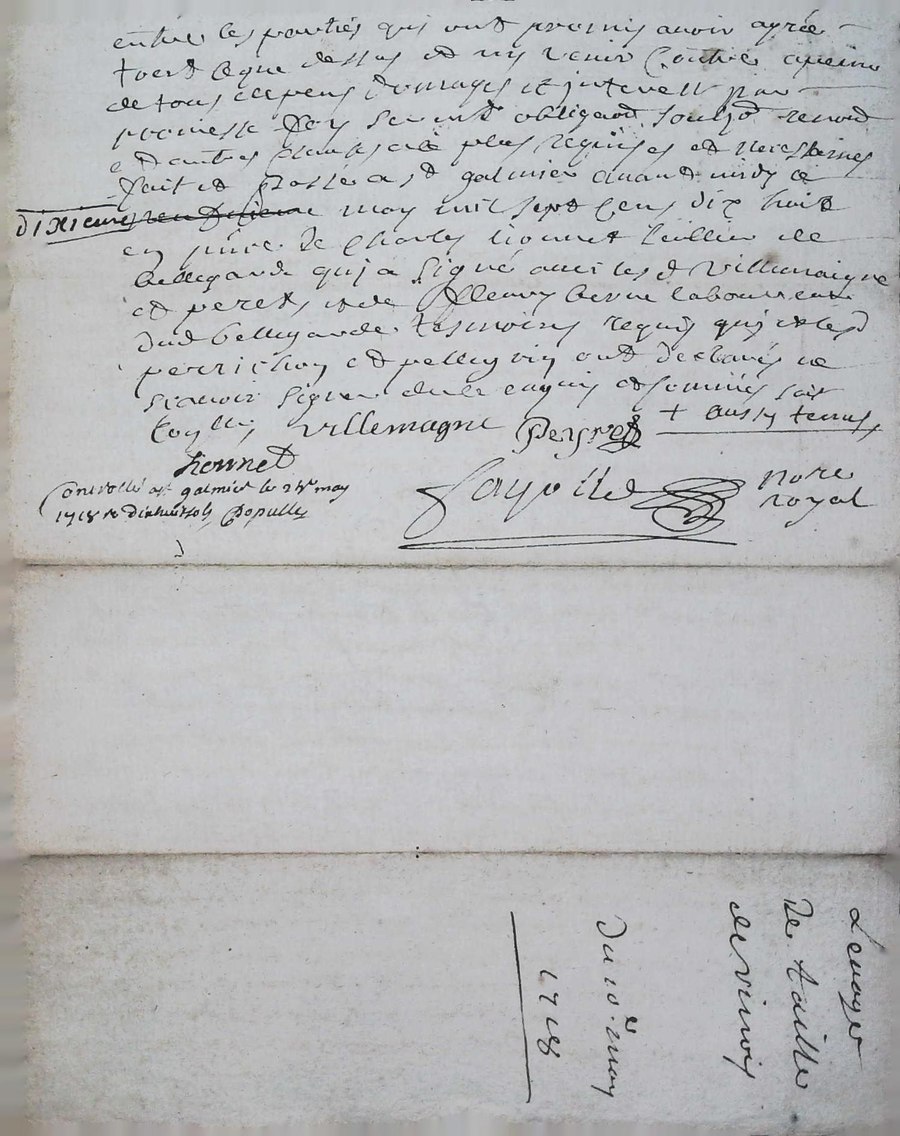 entre les parties qui ont promis avoir agréé
tout ce que dessus et ny venir contre a peine
de tous despens domages et interest par
promesse foy serment obligaon soub^on renon^on
et autres clauses a ce plus requises et necessaires
fait et passe a st galmier avant midy ce
dixieme may mil sept cens dix huit
en pnce de Charles lionnet tallieur de
bellegarde qui a signé avec les d villemaigne
et peret et de fleury berne laboureur
dud bellegarde tesmoins requis qui et lesd
perrichon et pellegrin ont declarés ne
scavoir signer de ce enquis et sommés soit
+ aussy tenus
villemagne Peyret
Lionnet
Controllé a st galmier le may
1718 r dixhuit sols Populle
fayolle no.re
royal
De taille
du 10.e may
1718